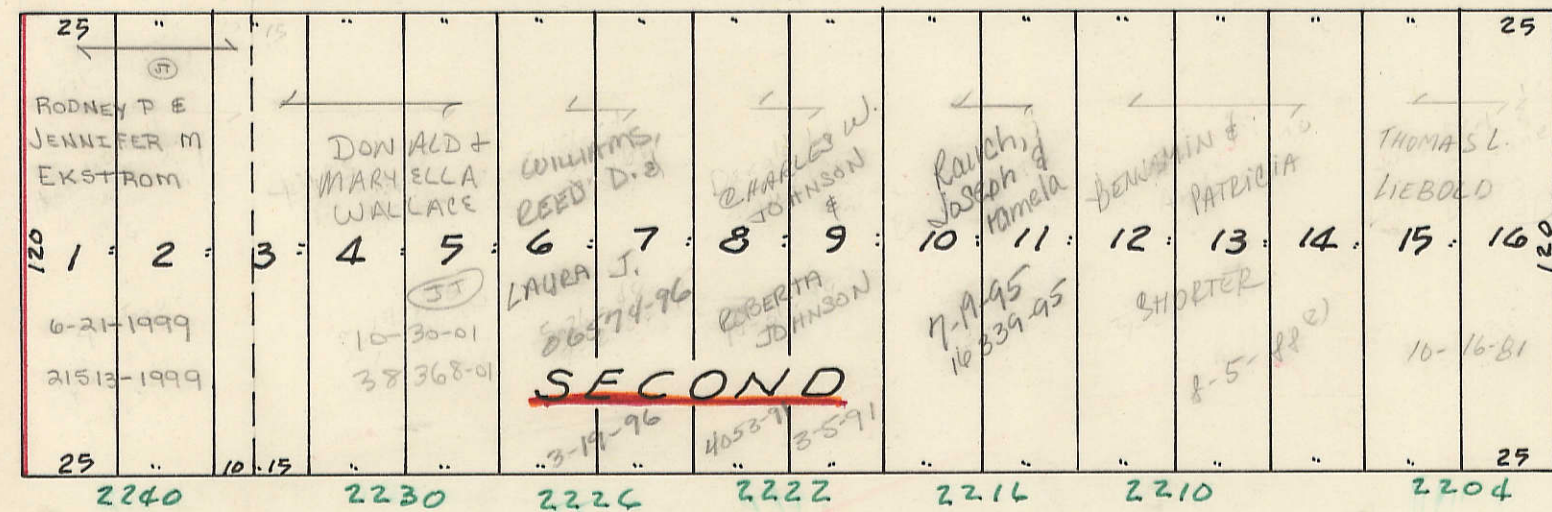 25 " " 15 " " " " " " " " " " " 25
JT
RODNEY P &
JENNIFER M
EKSTROM
DONALD &
MARY ELLA
WALLACE
WILLIAMS,
REED D. &
CHARLES W.
JOHNSON
&
Rauch,
Joseph &
Pamela
BENJAMIN &
PATRICIA
THOMAS L.
LIEBOLD
120 1 : 2 : 3 : 4 : 5 : 6 : 7 : 8 : 9 : 10 : 11 : 12 : 13 : 14 : 15 : 16 120
JT
LAURA J.
06574-96
ROBERTA
JOHNSON
7-19-95
16339-95
SHORTER
6-21-1999
21513-1999
10-30-01
38368-01
8-5-88
10-16-81
SECOND
3-19-96
4053-91
3-5-91
25 " 10 15 " " " " " " " " " " " 25
2240 2230 2226 2222 2216 2210 2204